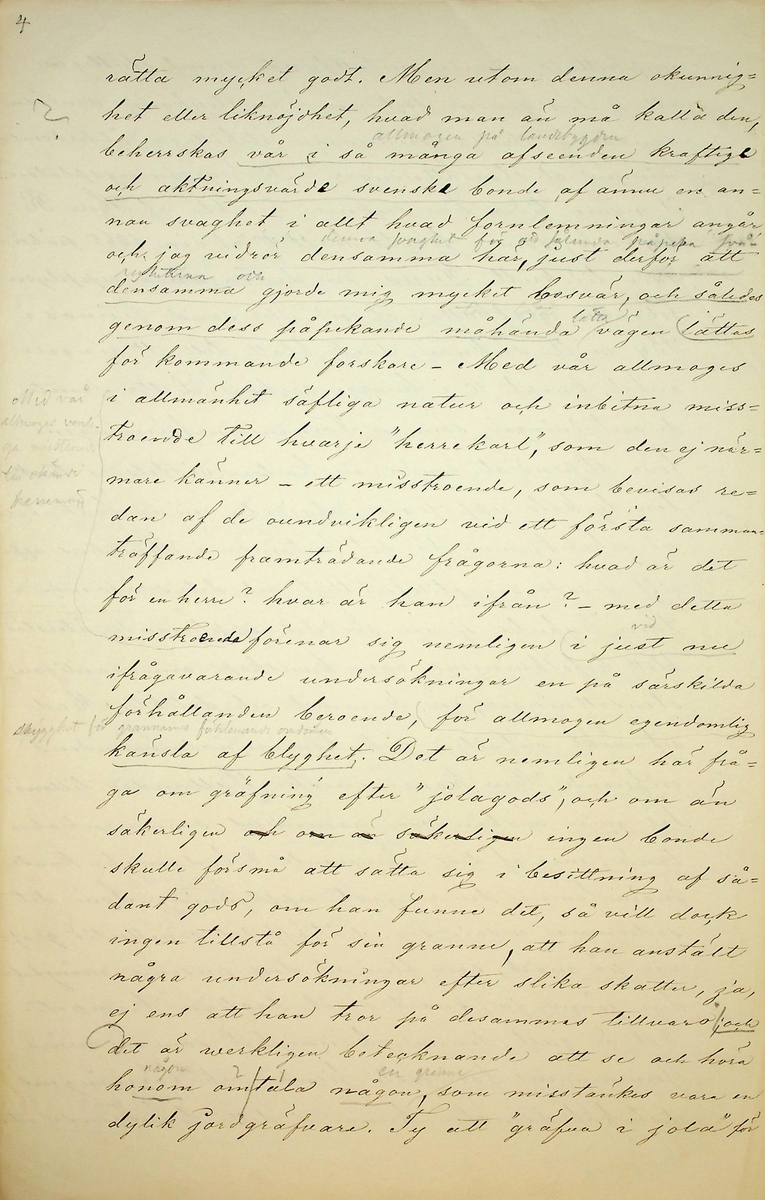 4
rätta mycket godt. Men utom denna okunnig=
het eller liknöjdhet, hvad man än må kalla den,
?
allmogen på landsbygden
beherrskas vår i så många afseenden kraftige
och aktningsvärde svenske bonde af ännu en an=
nan svaghet i allt hvad fornlemningar angår
denna svaghet för
och jag vidrör densamma här, just derför att
densamma gjorde mig mycket besvär, och således
lätta
genom dess påpekande måhända vägen (lättas
för kommande forskare – Med vår allmoges
Med vår
allmoges
i allmänhet säfliga natur och inbitna miss=
troende till hvarje "herrekarl", som den ej när=
mare känner – ett misstroende, som bevisas re=
dan af de oundvikligen vid ett första samman=
träffande framträdande frågorna: hvad är det
för en herre? hvar är han ifrån? – med detta
vid
misstroende förenar sig nemligen (i just nu
ifrågavarande undersökningar en på särskilda
förhållanden beroende, för allmogen egendomlig
skygghet för grannarnes förklenande omdömen
känsla af blyghet. Det är nemligen här frå=
ga om gräfning efter "jolagods", och om än
säkerligen och om än säkerligen ingen bonde
skulle försmå att sätta sig i besittning af så=
dant gods, om han funne det, så vill dock
ingen tillstå för sin granne, att han anställt
några undersökningar efter slika skatter, ja,
ej ens att han tror på desammas tillvaro; och
det är werkligen betecknande att se och höra
någon ? en granne
honom omtala någon, som misstänkes vara en
dylik jordgräfvare. Ty att "gräfva i jola" för